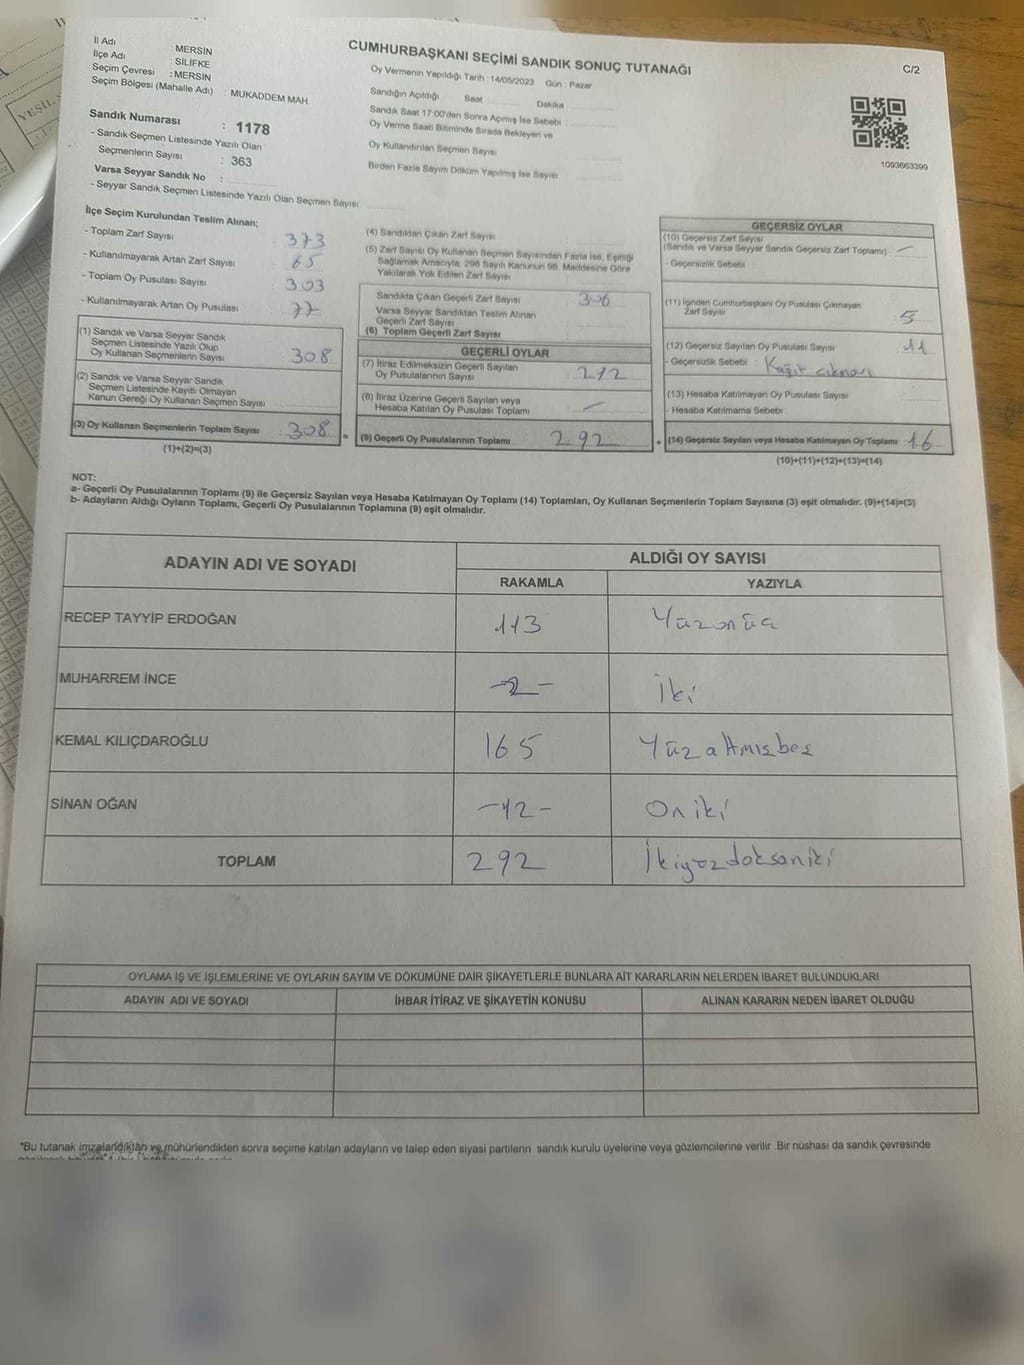 CUMHURBAŞKANI SEÇİMİ SANDIK SONUÇ TUTANAĞI
C/2
İl Adı : MERSİN
İlçe Adı : SİLİFKE
Seçim Çevresi : MERSİN
Seçim Bölgesi (Mahalle Adı) : MUKADDEM MAH
Oy Vermenin Yapıldığı Tarih : 14/05/2023 Gün : Pazar
Sandığın Açıldığı Saat Dakika
Sandık Saat 17:00'den Sonra Açılmış İse Sebebi :
Oy Verme Saati Bitiminde Sırada Bekleyen ve
Oy Kullandırılan Seçmen Sayısı
Birden Fazla Sayım Döküm Yapılmış İse Sayısı
1093663399
Sandık Numarası : 1178
- Sandık Seçmen Listesinde Yazılı Olan
Seçmenlerin Sayısı : 363
Varsa Seyyar Sandık No :
- Seyyar Sandık Seçmen Listesinde Yazılı Olan Seçmen Sayısı:
İlçe Seçim Kurulundan Teslim Alınan;
- Toplam Zarf Sayısı 373
- Kullanılmayarak Artan Zarf Sayısı 65
- Toplam Oy Pusulası Sayısı 303
- Kullanılmayarak Artan Oy Pusulası 77
(1) Sandık ve Varsa Seyyar Sandık
Seçmen Listesinde Yazılı Olup
Oy Kullanan Seçmenlerin Sayısı 308
(2) Sandık ve Varsa Seyyar Sandık
Seçmen Listesinde Kayıtlı Olmayan
Kanun Gereği Oy Kullanan Seçmen Sayısı
(3) Oy Kullanan Seçmenlerin Toplam Sayısı : 308 =
(1)+(2)=(3)
(4) Sandıktan Çıkan Zarf Sayısı
(5) Zarf Sayısı Oy Kullanan Seçmen Sayısından Fazla İse, Eşitliği
Sağlamak Amacıyla, 298 Sayılı Kanunun 98. Maddesine Göre
Yakılarak Yok Edilen Zarf Sayısı
Sandıkta Çıkan Geçerli Zarf Sayısı 306
Varsa Seyyar Sandıktan Teslim Alınan
Geçerli Zarf Sayısı
(6) Toplam Geçerli Zarf Sayısı
GEÇERLİ OYLAR
(7) İtiraz Edilmeksizin Geçerli Sayılan
Oy Pusulalarının Sayısı : 292
(8) İtiraz Üzerine Geçerli Sayılan veya
Hesaba Katılan Oy Pusulası Toplamı —
(9) Geçerli Oy Pusulalarının Toplamı 292 +
GEÇERSİZ OYLAR
(10) Geçersiz Zarf Sayısı
(Sandık ve Varsa Seyyar Sandık Geçersiz Zarf Toplamı) —
- Geçersizlik Sebebi
(11) İçinden Cumhurbaşkanı Oy Pusulası Çıkmayan
Zarf Sayısı 5
(12) Geçersiz Sayılan Oy Pusulası Sayısı 11
- Geçersizlik Sebebi : Kağıt
(13) Hesaba Katılmayan Oy Pusulası Sayısı
- Hesaba Katılmama Sebebi
(14) Geçersiz Sayılan veya Hesaba Katılmayan Oy Toplamı 16
(10)+(11)+(12)+(13)=(14)
NOT:
a- Geçerli Oy Pusulalarının Toplamı (9) ile Geçersiz Sayılan veya Hesaba Katılmayan Oy Toplamı (14) Toplamları, Oy Kullanan Seçmenlerin Toplam Sayısına (3) eşit olmalıdır. (9)+(14)=(3)
b- Adayların Aldığı Oyların Toplamı, Geçerli Oy Pusulalarının Toplamına (9) eşit olmalıdır.
ADAYIN ADI VE SOYADI ALDIĞI OY SAYISI
RAKAMLA YAZIYLA
RECEP TAYYİP ERDOĞAN 113 Yüzonüç
MUHARREM İNCE -2- İki
KEMAL KILIÇDAROĞLU 165 Yüzaltmışbeş
SİNAN OĞAN -12- Oniki
TOPLAM 292 İkiyüzdoksaniki
OYLAMA İŞ VE İŞLEMLERİNE VE OYLARIN SAYIM VE DÖKÜMÜNE DAİR ŞİKAYETLERLE BUNLARA AİT KARARLARIN NELERDEN İBARET BULUNDUKLARI
ADAYIN ADI VE SOYADI İHBAR İTİRAZ VE ŞİKAYETİN KONUSU ALINAN KARARIN NEDEN İBARET OLDUĞU
*Bu tutanak imzalandıktan ve mühürlendikten sonra seçime katılan adayların ve talep eden siyasi partilerin sandık kurulu üyelerine veya gözlemcilerine verilir. Bir nüshası da sandık çevresinde
YEŞİL